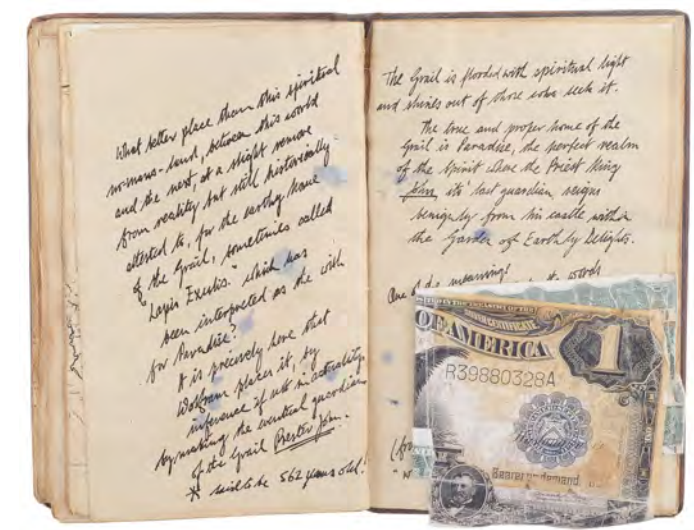 What better place than this spiritual
no-mans-land, between this world
and the next, at a slight remove
from reality but still historically
attested to, for the earthly home
of the Grail, sometimes called
"Lapis Exilis." which has
been interpreted as the wish
for Paradise?
It is precisely here that
Wolfram places it, by
inference if not in actuality,
by making the eventual guardian
of the Grail Prester John.
* said to be 562 years old!
The Grail is flooded with spiritual light
and shines out of those who seek it.
The true and proper home of the
Grail is Paradise, the perfect realm
of the spirit where the Priest King
John, its' last guardian reigns
benignly from his castle within
the Garden of Earthly Delights.
One of its meanings
words
OF AMERICA
SILVER CERTIFICATE
1
R39880328A
Bearer on demand